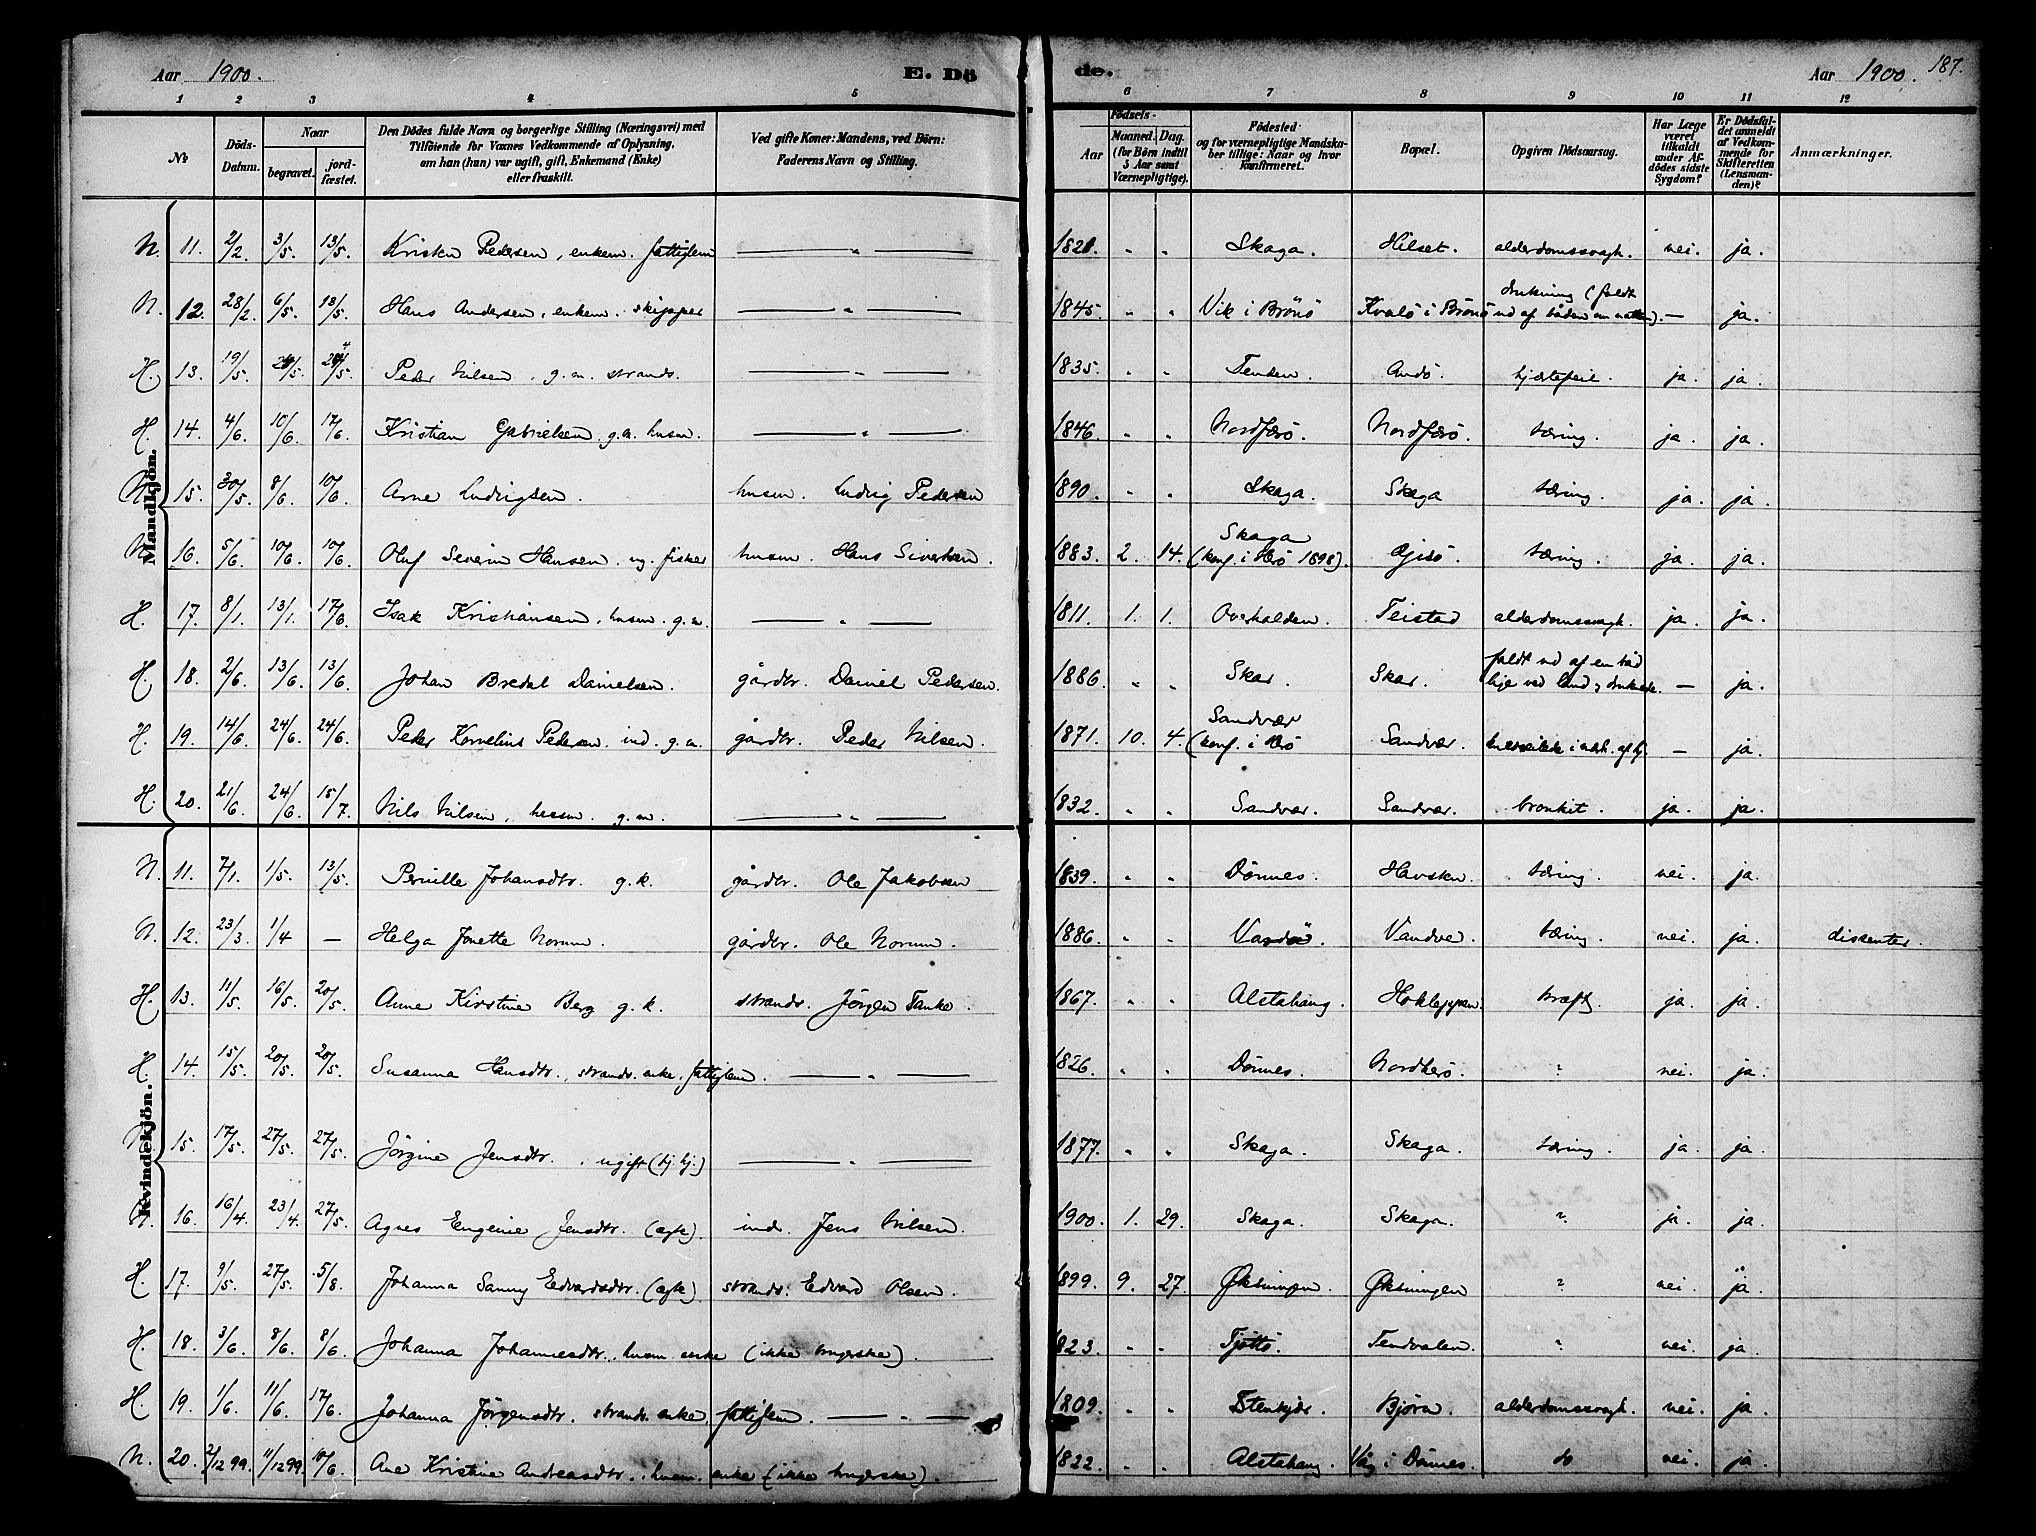 Aar 1900. E. Dö de. Aar 1900. 187.
1 2 3 4 5 6 7 8 9 10 11 12
No Döds-Datum. Naar begravet. jord-fæstet. Den Dödes fulde Navn og borgerlige Stilling (Næringsvei) med Tilföiende for Voxnes Vedkommende af Oplysning, om han (hun) var ugift, gift, Enkemand (Enke) eller fraskilt. Ved gifte Koner: Mandens, ved Börn: Faderens Navn og Stilling. Födsels- Aar Maaned. Dag. (for Börn indtil 5 Aar samt Værnepligtige). Födested og for værnepligtige Mandskaber tillige: Naar og hvor konfirmeret. Bopæl. Opgiven Dödsaarsag. Har Læge været tilkaldt under Afdödes sidste Sygdom? Er Dödsfaldet anmeldt af Vedkommende for Skifteretten (Lensmanden)? Anmærkninger.
Mandkjön.
N. 11. 2/2 3/5. 13/5. Kristen Pedersen, enkem. fattiglem — " — 1821. " " Skaga. Hilset. alderdomssvagh. nei. ja.
N. 12. 28/2. 6/5. 13/5. Hans Andersen, enkem. skipper — " — 1845. " " Vik i Brönö Kvalö i Brönö drukning (faldt ud af båden om natten). — ja.
H. 13. 19/5. 24/5. 24/5. Peder Nilsen, g.m. strands. — " — 1835. " " Tenden. Andö. hjærtefeil. ja. ja.
H. 14. 4/6. 10/6. 17/6. Kristian Gabrielsen. g.m. husm. — " — 1846. " " Nordherö. Nordherö. tæring. ja. ja.
N. 15. 30/5. 8/6. 10/6. Arne Ludvigsen. husm. Ludvig Pedersen 1890. " " Skaga. Skaga tæring. ja. ja.
N. 16. 5/6. 10/6. 10/6. Oluf Severin Hansen, ug. fisker husm. Hans Sivertsen. 1883. 2. 14. Skaga (konf. i Herö 1898). Gjisö. tæring. ja. ja.
H. 17. 8/1. 13/1. 17/6. Isak Kristiansen, husm. g.m. — " — 1811. 1. 1. Overhalden. Teistad alderdomssvagh. ja. ja.
H. 18. 2/6. 13/6. 13/6. Johan Bredal Danielsen. gårdbr. Daniel Pedersen. 1886. " " Skar. Skar. faldt ud af en båd lige ved land & druknede. — ja.
H. 19. 14/6. 24/6. 24/6. Peder Kornelius Pedersen. ind. g.m. gårdbr. Peder Nilsen. 1871. 10. 4. Sandvær (konf. i Herö Sandvær. — ja.
H. 20. 21/6. 24/6. 15/7. Nils Nilsen, husm. g.m. — " — 1832. " " Sandvær. Sandvær. bronkit. ja. ja.
Kvindekjön.
N. 11. 7/1. 1/5. 13/5. Pernille Johansdtr. g.k. gårdbr. Ole Jakobsen 1839. " " Dönnes. Havsten. tæring. nei. ja.
N. 12. 23/3. 1/4 — Helga Jonette Norum. gårdbr. Ole Norum. 1886. " " Vardö. Vandve. tæring. nei. ja. dissenter.
H. 13. 11/5. 16/5. 20/5. Anne Kirstine Berg g.k. strands. Jörgen Tanke. 1867. " " Alstahaug. Hokleppen. kræft. ja. ja.
H. 14. 15/5. 20/5. 20/5. Susanna Hansdtr., strands. enke, fattiglem. — " — 1826. " " Dönnes. Nordherö. ? nei. ja.
N. 15. 17/5. 27/5. 27/5. Jörgine Jensdtr., ugift (hj. hj.) — " — 1877. " " Skaga. Skaga. tæring. ja. ja.
N. 16. 16/4. 23/4. 27/5. Agnes Eugenie Jensdtr. (ægte) ind. Jens Nilsen. 1900. 1. 29. Skaga. Skaga. ? ja. ja.
H. 17. 9/5. 27/5. 5/8. Johanna Sanny Edvardsdtr. (ægte) strands. Edvard Olsen. 1899. 9. 27. Øksningen Øksningen ? nei. ja.
H. 18. 3/6. 8/6. 8/6. Johanna Johannesdtr., husm. enke (ikke brugerske). 1823. " " Tjöttö. Tendvalen. ? nei. ja.
H. 19. 1/6. 11/6. 17/6. Johanna Jörgensdtr. strands. enke, fattiglem. — " — 1809. " " Stenkjær. Bjørn. alderdomssvagh. nei. ja.
N. 20. 2/12 99. 11/12 99. 10/6. Ane Kristine Andreasdtr., husm. enke (ikke brugerske). 1822. " " Alstahaug. Våg i Dönnes. do nei. ja.